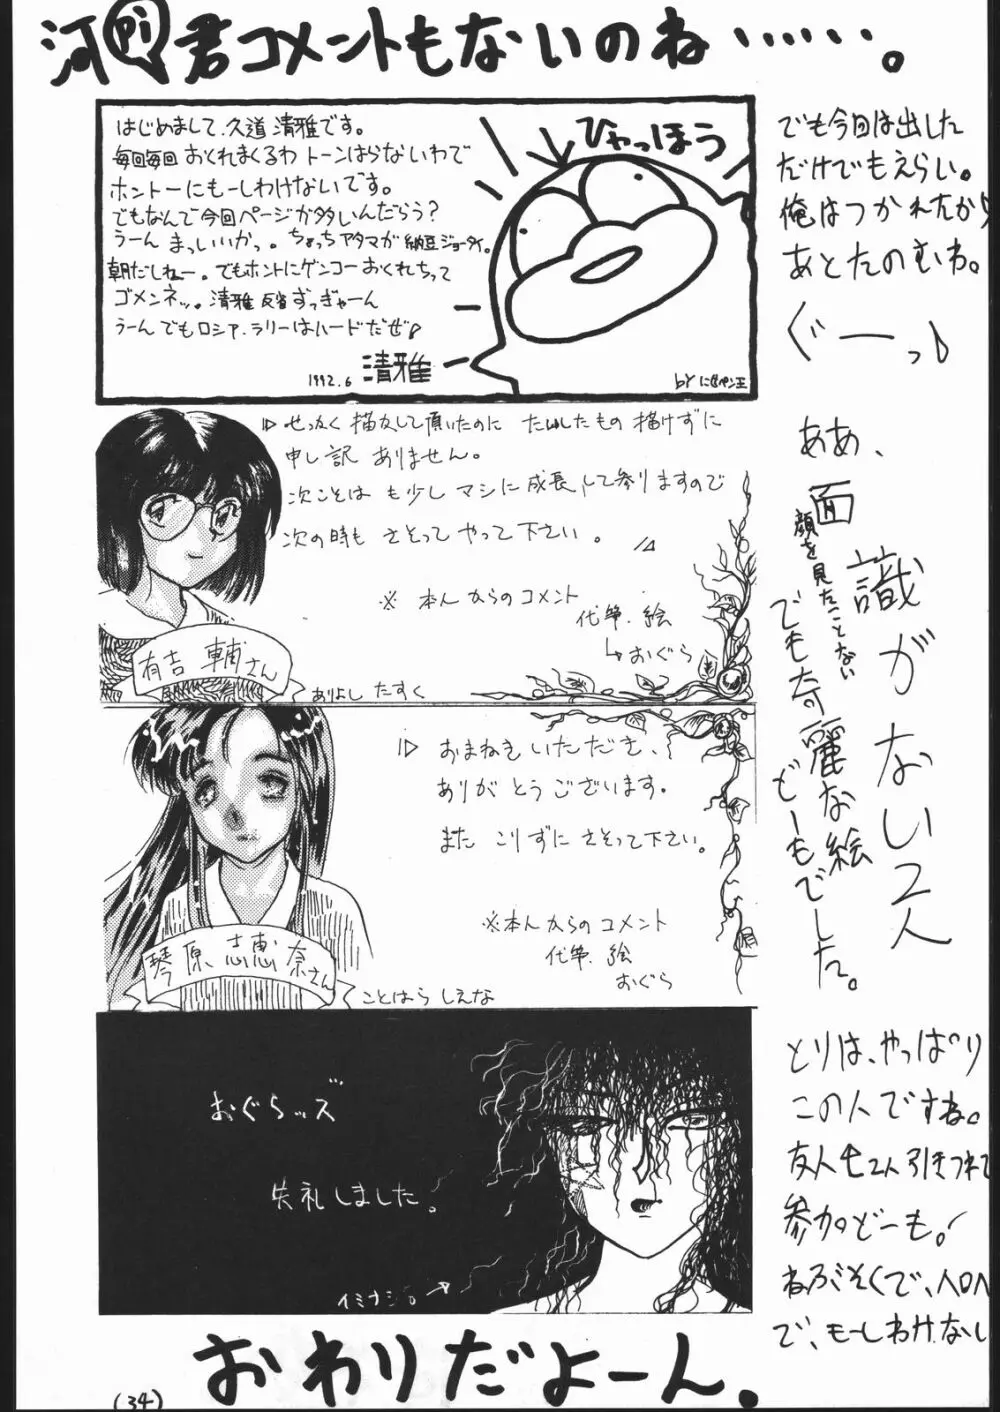 河Pi君コメントもないのね……。
はじめまして、久道 清雅です。
毎回毎回 おくれまくるわ トーンはらないわで
ホントーにもーしわけないです。
でもなんで今回ページが多いんだらう?
うーん まっいいかっ。ちょっちアタマが納豆ジョータイ。
朝だしねー。でもホントにゲンコーおくれちって
ゴメンネッ。清雅 反省 ずっぎゃーん
うーん でもロシア、ラリーはハードだぜ♪
1992.6 清雅
ひゃっほう
でも今回は出した
だけでもえらい。
俺はつかれたから
あとたのむね。
ぐーっ♪
せっかく 描かして頂いたのに たいしたもの 描けずに
申し訳 ありません。
次こそは も少し マシに 成長して参りますので
次の時も さそって やって下さい。
※ 本人からのコメント
代筆、絵
↳おぐら
有吉 輔さん
ありよし たすく
おまねき いただき、
ありがとうございます。
また こりずに さそって下さい。
※本人からのコメント
代筆、絵
おぐら
琴原 志恵奈さん
ことはら しえな
ああ、
面識がない2人
顔を見たことない
でも奇麗な絵
どーもでした。
おぐらッズ
失礼しました。
イミナシ。→
とりは、やっぱり
この人ですね。
友人も2人引きつれて
参加どーも。
ねぶそくで、
で、もーしわけなし
おわりだよーん。
(34)